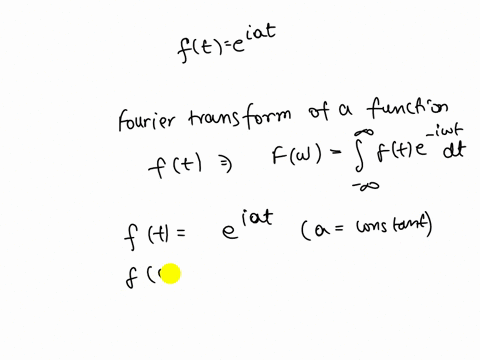 f(t)=e^{iat}
Fourier transform of a function
f(t) ⇒ F(ω) = ∫_{-∞}^{∞} f(t) e^{-iωt} dt
f(t) = e^{iat} (a = constant)
f(